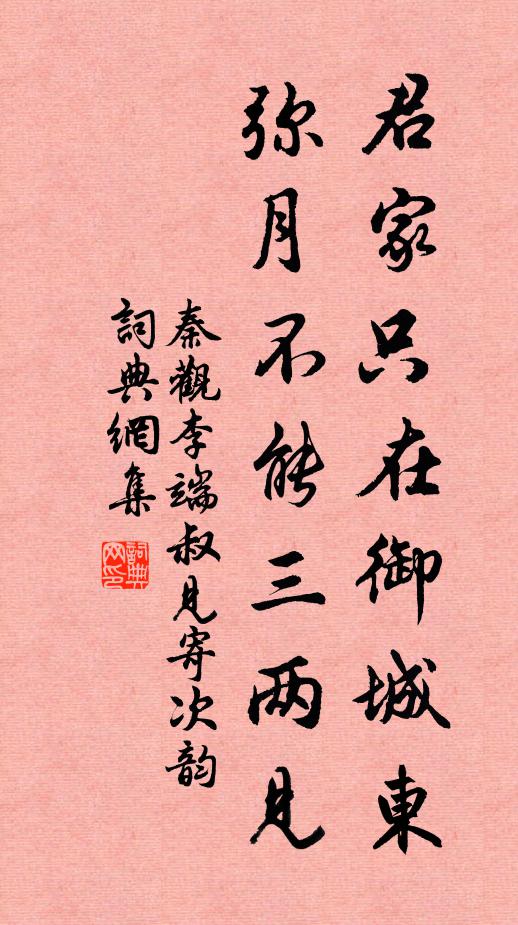 君家只在御城東
弥月不能三两見
秦觀李端叔見寄次韵
詞典網集
詞典網印